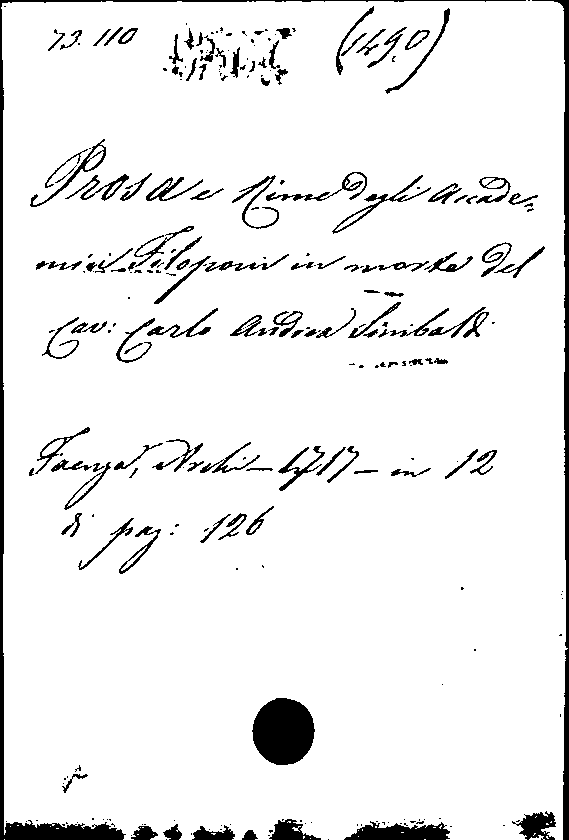 73. 110 (1490)
Prosa e Rime degli Accade=
mici Filoponi in morte del
Cav: Carlo Andrea Sinibaldi
Faenza, Archi – 1717 – in 12
di pag: 126